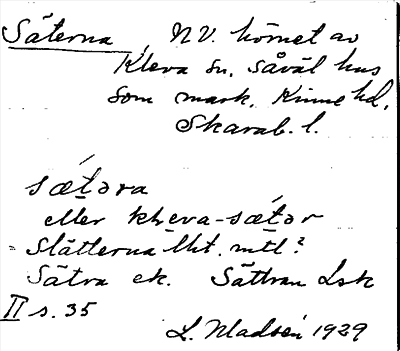 Säterna, NV. hörnet av
Kleva sn, såväl hus
som mark. Kinne hd,
Skarab. l.
sǽtəra
eller kleva-sǽtər
= Slätterna lht. mtl?
Sätra ek. Sättran Lsk
II s. 35
L. Madsén 1929